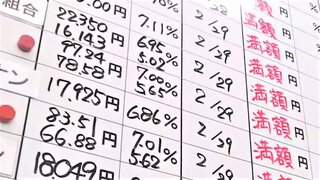 組合
.00円 % 2/29 満額
22350円 7.11% 2/29 満額
16,143円 6.95
97.24 5.02% 2/28 満額
78.58円 7.00
5.65% 2/29 満額
ーン
17,925円 6.86% 2/29 満額
83.51円 7.01%
66.88 5.62 2/29 満額
18049円 % 2/29 満額